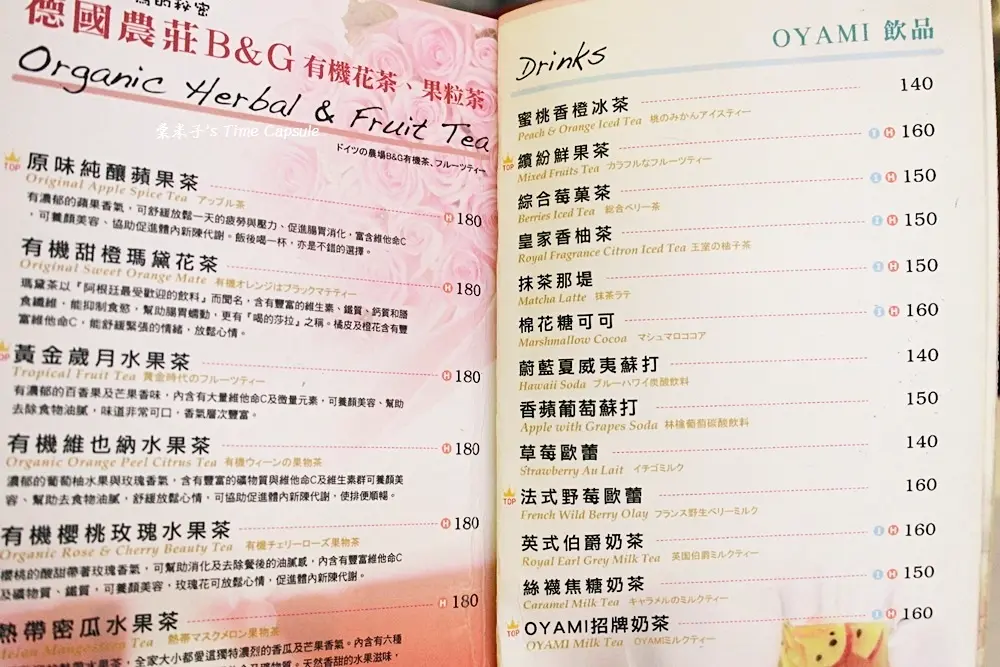 的秘密
德國農莊B&G 有機花茶、果粒茶
Organic Herbal & Fruit Tea
栗米子's Time Capsule
ドイツの農場B&G有機茶、フルーツティー
TOP 原味純釀蘋果茶 H 180
Original Apple Spice Tea アップル茶
有濃郁的蘋果香氣，可舒緩放鬆一天的疲勞與壓力、促進腸胃消化，富含維他命C
，可養顏美容、協助促進體內新陳代謝。飯後喝一杯，亦是不錯的選擇。
有機甜橙瑪黛花茶 H 180
Original Sweet Orange Mate 有機オレンジはブラックマテティー
瑪黛茶以『阿根廷最受歡迎的飲料』而聞名，含有豐富的維生素、鐵質、鈣質和膳
食纖維，能抑制食慾，幫助腸胃蠕動，更有『喝的沙拉』之稱。橘皮及橙花含有豐
富維他命C，能舒緩緊張的情緒，放鬆心情。
TOP 黃金歲月水果茶 H 180
Tropical Fruit Tea 黄金時代のフルーツティー
有濃郁的百香果及芒果香味，內含有大量維他命C及微量元素，可養顏美容、幫助
去除食物油膩，味道非常可口，香氣層次豐富。
有機維也納水果茶 H 180
Organic Orange Peel Citrus Tea 有機ウィーンの果物茶
濃郁的葡萄柚水果與玫瑰香氣，含有豐富的礦物質與維他命C及維生素群可養顏美
容、幫助去食物油膩，舒緩放鬆心情，可協助促進體內新陳代謝，使排便順暢。
有機櫻桃玫瑰水果茶 H 180
Organic Rose & Cherry Beauty Tea 有機チェリーローズ果物茶
櫻桃的酸甜帶著玫瑰香氣，可幫助消化及去除餐後的油膩感，內含有豐富維他命C
及礦物質、鐵質，可養顏美容，玫瑰花可放鬆心情，促進體內新陳代謝。
熱帶密瓜水果茶 H 180
Melon Mangosteen Tea 熱帯マスクメロン果物茶
全家大小都愛這獨特濃烈的香瓜及芒果香氣。內含有六種
Drinks
OYAMI 飲品
蜜桃香橙冰茶 140
Peach & Orange Iced Tea 桃のみかんアイスティー
TOP 繽紛鮮果茶 I H 160
Mixed Fruits Tea カラフルなフルーツティー
綜合莓菓茶 I H 150
Berries Iced Tea 総合ベリー茶
皇家香柚茶 I H 150
Royal Fragrance Citron Iced Tea 王室の柚子茶
抹茶那堤 I H 150
Matcha Latte 抹茶ラテ
棉花糖可可 I H 160
Marshmallow Cocoa マシュマロココア
蔚藍夏威夷蘇打 140
Hawaii Soda ブルーハワイ炭酸飲料
香蘋葡萄蘇打 150
Apple with Grapes Soda 林檎葡萄碳酸飲料
草莓歐蕾 140
Strawberry Au Lait イチゴミルク
TOP 法式野莓歐蕾 160
French Wild Berry Olay フランス野生ベリーミルク
英式伯爵奶茶 I H 160
Royal Earl Grey Milk Tea 英国伯爵ミルクティー
絲襪焦糖奶茶 I H 150
Caramel Milk Tea キャラメルのミルクティー
TOP OYAMI招牌奶茶 I H 160
OYAMI Milk Tea OYAMIミルクティー